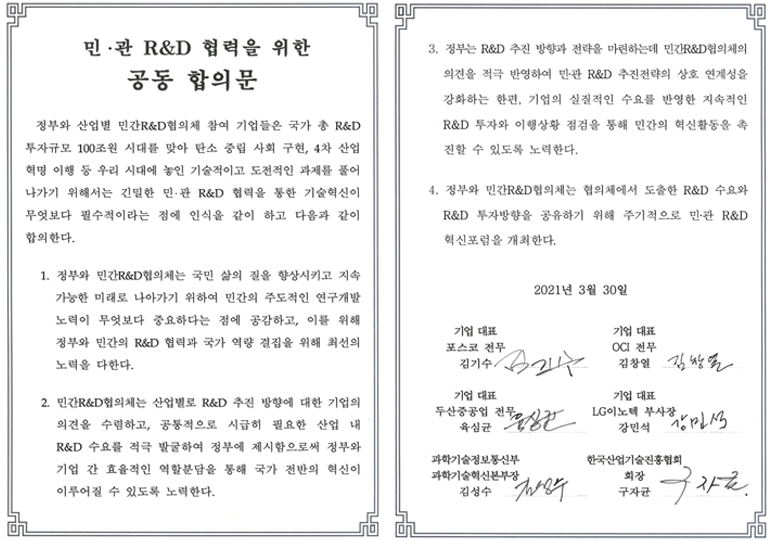 민·관 R&D 협력을 위한
공동 합의문
정부와 산업별 민간R&D협의체 참여 기업들은 국가 총 R&D
투자규모 100조원 시대를 맞아 탄소 중립 사회 구현, 4차 산업
혁명 이행 등 우리 시대에 놓인 기술적이고 도전적인 과제를 풀어
나가기 위해서는 긴밀한 민·관 R&D 협력을 통한 기술혁신이
무엇보다 필수적이라는 점에 인식을 같이 하고 다음과 같이
합의한다.
1. 정부와 민간R&D협의체는 국민 삶의 질을 향상시키고 지속
가능한 미래로 나아가기 위하여 민간의 주도적인 연구개발
노력이 무엇보다 중요하다는 점에 공감하고, 이를 위해
정부와 민간의 R&D 협력과 국가 역량 결집을 위해 최선의
노력을 다한다.
2. 민간R&D협의체는 산업별로 R&D 추진 방향에 대한 기업의
의견을 수렴하고, 공통적으로 시급히 필요한 산업 내
R&D 수요를 적극 발굴하여 정부에 제시함으로써 정부와
기업 간 효율적인 역할분담을 통해 국가 전반의 혁신이
이루어질 수 있도록 노력한다.
3. 정부는 R&D 추진 방향과 전략을 마련하는데 민간R&D협의체의
의견을 적극 반영하여 민·관 R&D 추진전략의 상호 연계성을
강화하는 한편, 기업의 실질적인 수요를 반영한 지속적인
R&D 투자와 이행상황 점검을 통해 민간의 혁신활동을 촉
진할 수 있도록 노력한다.
4. 정부와 민간R&D협의체는 협의체에서 도출한 R&D 수요와
R&D 투자방향을 공유하기 위해 주기적으로 민·관 R&D
혁신포럼을 개최한다.
2021년 3월 30일
기업 대표
포스코 전무
김기수 김기수
기업 대표
OCI 전무
김창열 김창열
기업 대표
두산중공업 전무
육심균
기업 대표
LG이노텍 부사장
강민석 강민석
과학기술정보통신부
과학기술혁신본부장
김성수 김성수
한국산업기술진흥협회
회장
구자균 구자균